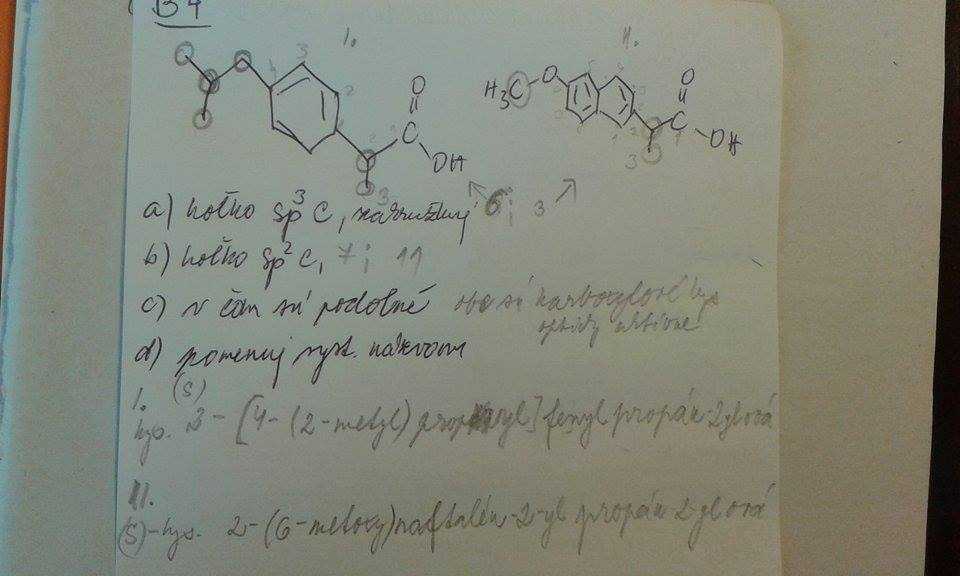 B4
I.
II.
O
OH
H3C O
O
OH
a) koľko sp3 C, zakrúžkuj 6; 3
b) koľko sp2 C, 7; 11
c) v čom sú podobné obe sú karboxylové kys
opticky aktívne
d) pomenuj syst. názvom
I. (S)
kys. 2-[4-(2-metyl)propyl]fenyl propán-2-ylová
II.
(S)-kys. 2-(6-metoxy)naftalén-2-yl propán 2-ylová